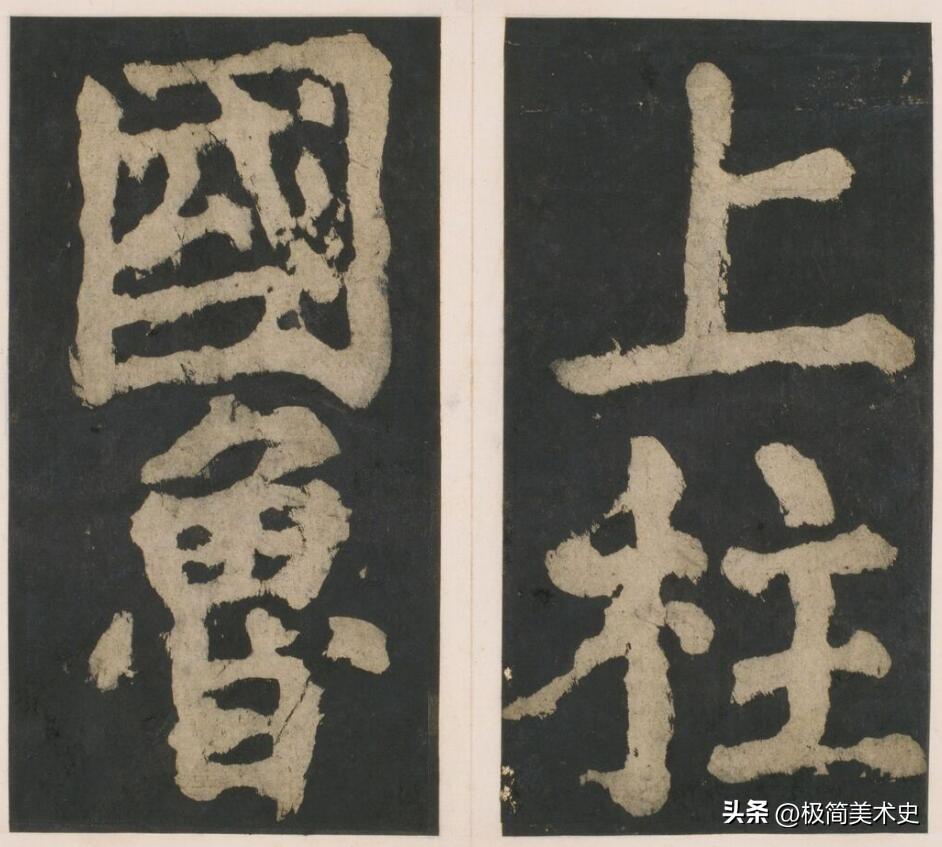 上柱
國魯
头条 @极简美术史